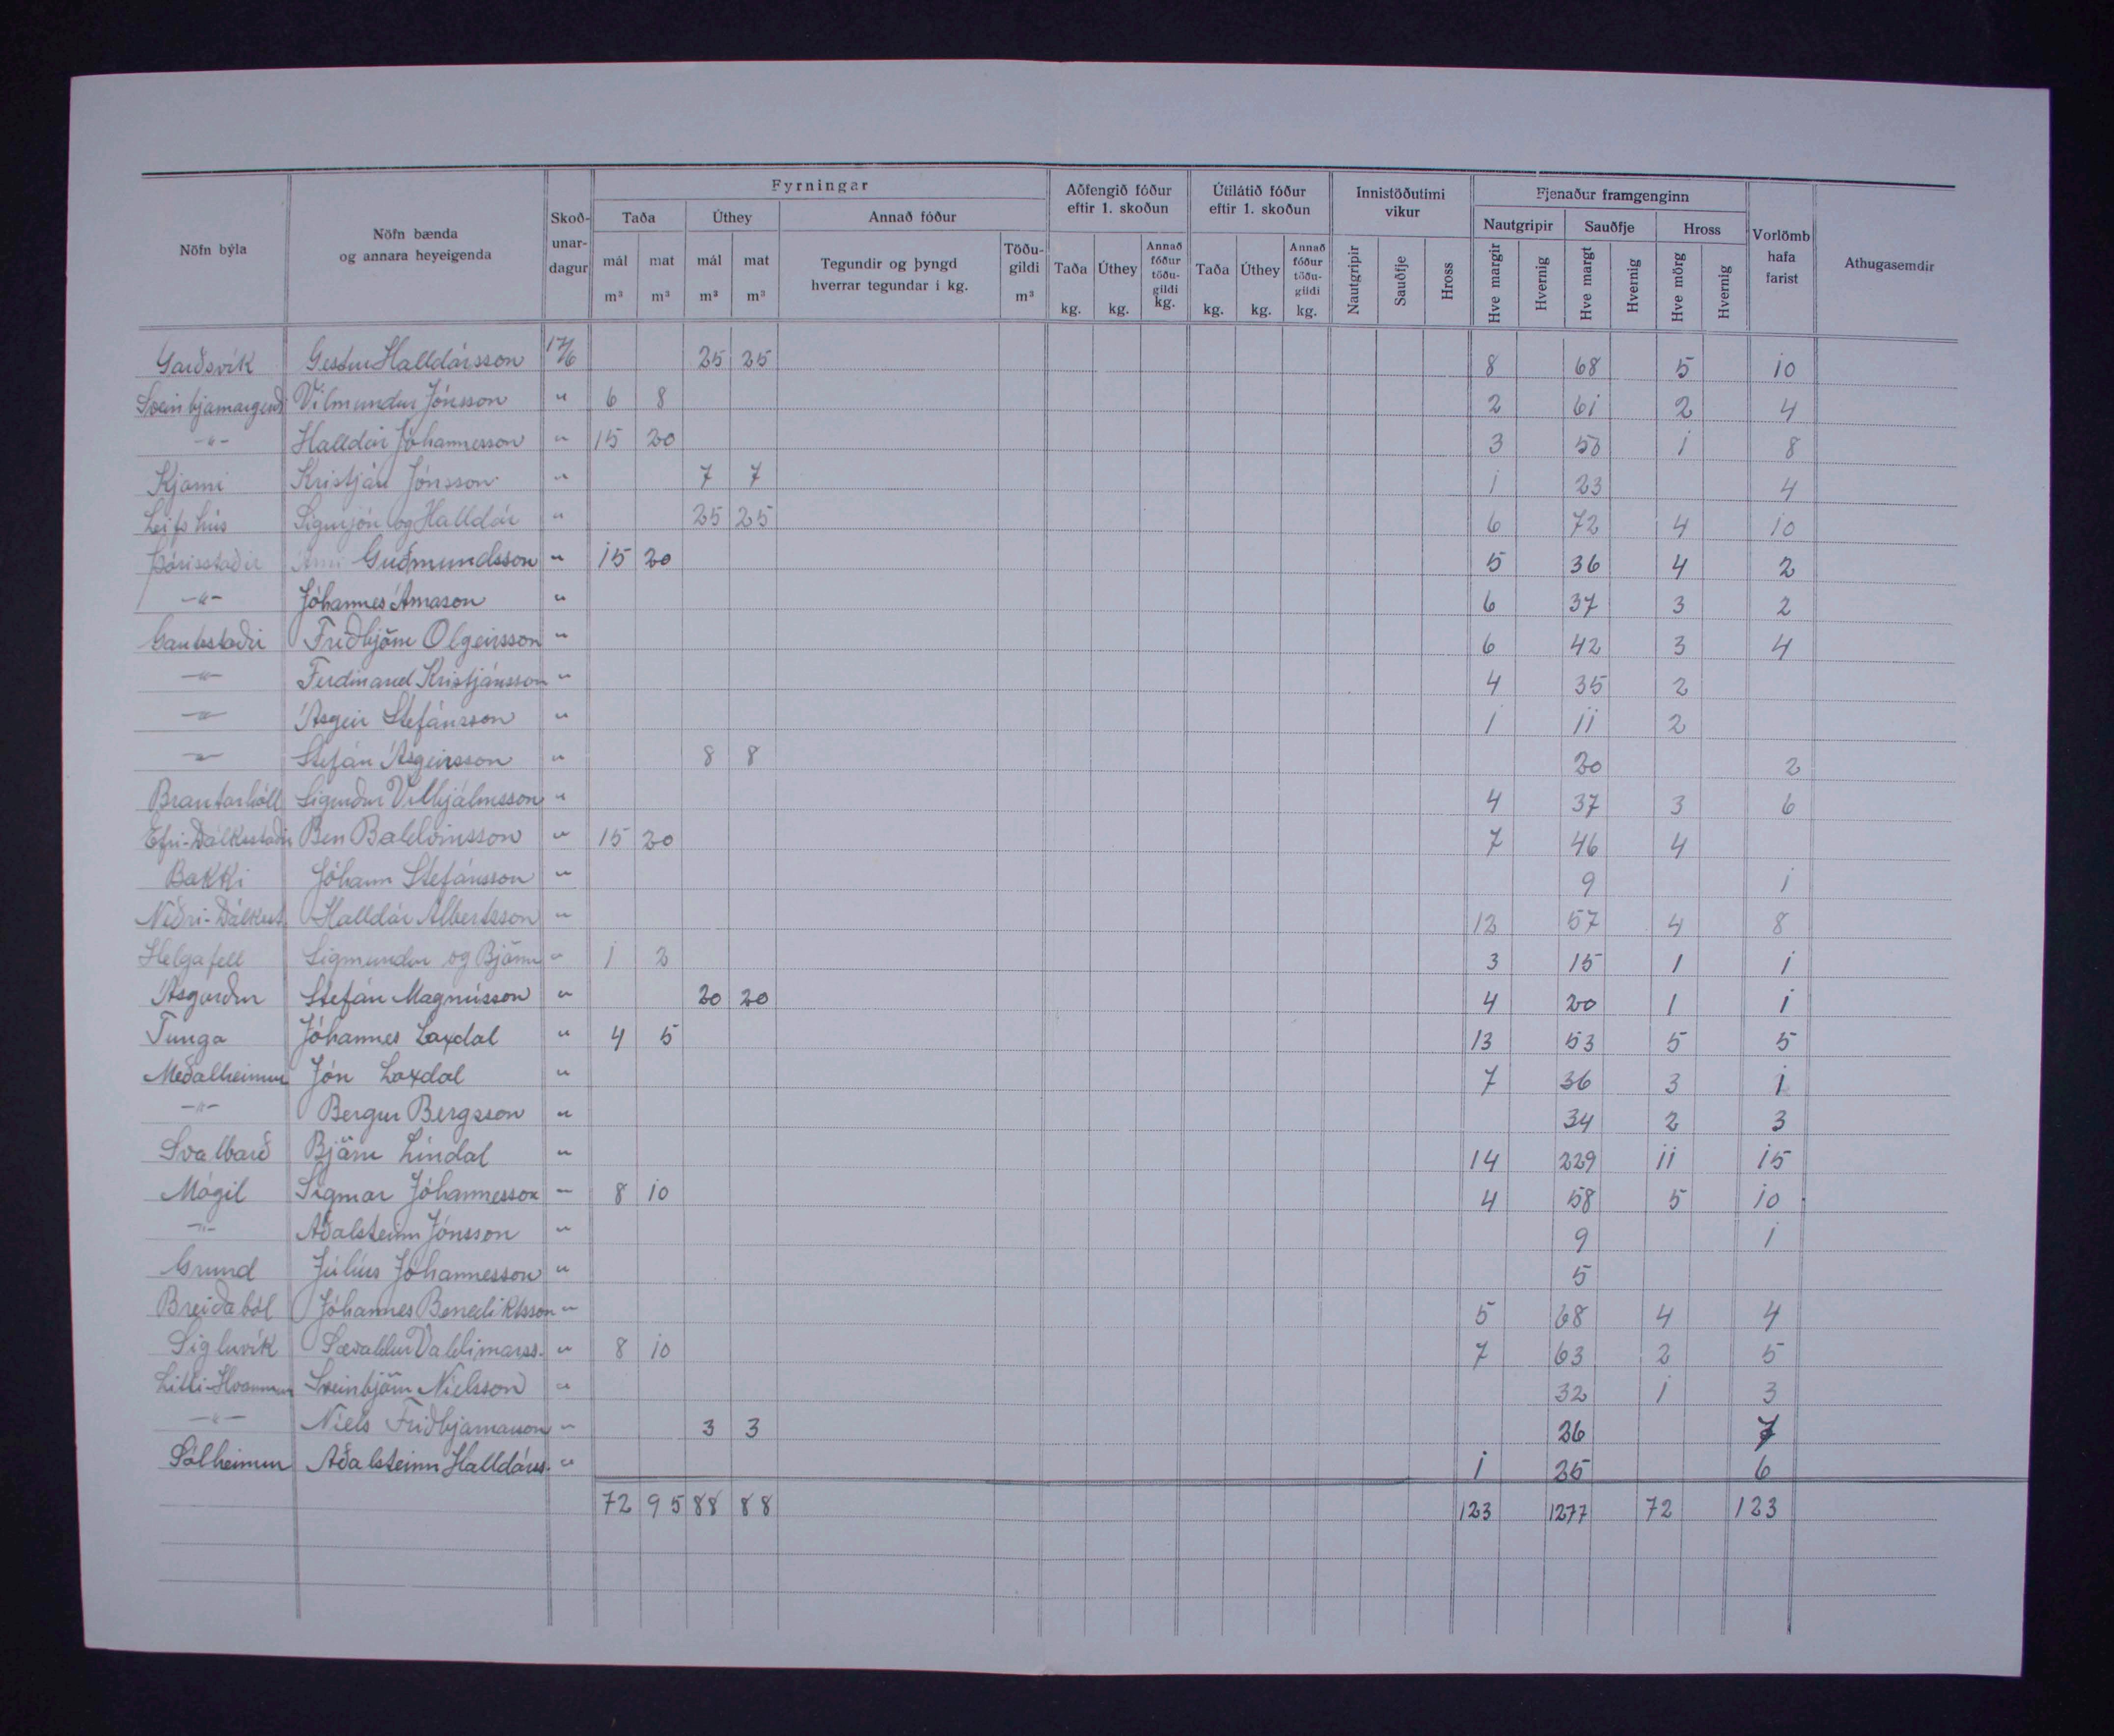 Fyrningar
Aðfengið fóður eftir 1. skoðun
Útilátið fóður eftir 1. skoðun
Innistöðutími vikur
Fjenaður framgenginn
Nöfn býla
Nöfn bænda og annara heyeigenda
Skoð-unar-dagur
Taða
Úthey
Annað fóður
Nautgripir
Sauðfje
Hross
Vorlömb hafa farist
Athugasemdir
mál m³ mat m³ mál m³ mat m³
Tegundir og þyngd hverrar tegundar í kg.
Töðu-gildi m³
Taða kg. Úthey kg. Annað fóður töðu-gildi kg.
Taða kg. Úthey kg. Annað fóður töðu-gildi kg.
Nautgripir Sauðfje Hross
Hve margir Hvernig Hve margt Hvernig Hve mörg Hvernig
Garðsvík Gestur Halldórsson 17/6 25 25 8 68 5 10
Sveinbjarnargerði Vilmundur Jónsson " 6 8 2 61 2 4
-"- Halldór Jóhannesson " 15 20 3 50 1 8
Kjarni Kristján Jónsson " 7 7 1 23 4
Leifshús Sigurjón og Halldór " 25 25 6 72 4 10
Þórisstaðir Árni Guðmundsson " 15 20 5 36 4 2
-"- Jóhannes Árnason " 6 37 3 2
Gautsstaðir Friðbjörn Olgeirsson " 6 42 3 4
-"- Ferdinand Kristjánsson " 4 35 2
-"- Ásgeir Stefánsson " 1 11 2
-"- Stefán Ásgeirsson " 8 8 20 2
Brautarhóll Sigurður Vilhjálmsson " 4 37 3 6
Efri-Dálksstaðir Ben Baldvinsson " 15 20 7 46 4
Bakki Jóhann Stefánsson " 9 1
Neðri-Dálksst. Halldór Albertsson " 12 57 4 8
Helgafell Sigmundur og Björn " 1 2 3 15 1 1
Ásgarður Stefán Magnússon " 20 20 4 20 1 1
Tunga Jóhannes Laxdal " 4 5 13 53 5 5
Meðalheimur Jón Laxdal " 7 36 3 1
-"- Bergur Bergsson " 34 2 3
Svalbarð Björn Líndal " 14 229 11 15
Mógil Sigmar Jóhannesson " 8 10 4 58 5 10
-"- Aðalsteinn Jónsson " 9 1
Grund Júlíus Jóhannesson " 5
Breiðaból Jóhannes Benediktsson " 5 68 4 4
Sigluvík Sævaldur Valdimarss. " 8 10 7 63 2 5
Litli-Hvammur Sveinbjörn Níelsson " 32 1 3
-"- Níels Friðbjarnarson " 3 3 26 7
Sólheimur Aðalsteinn Halldórss. " 1 25 6
72 95 88 88 123 1277 72 123